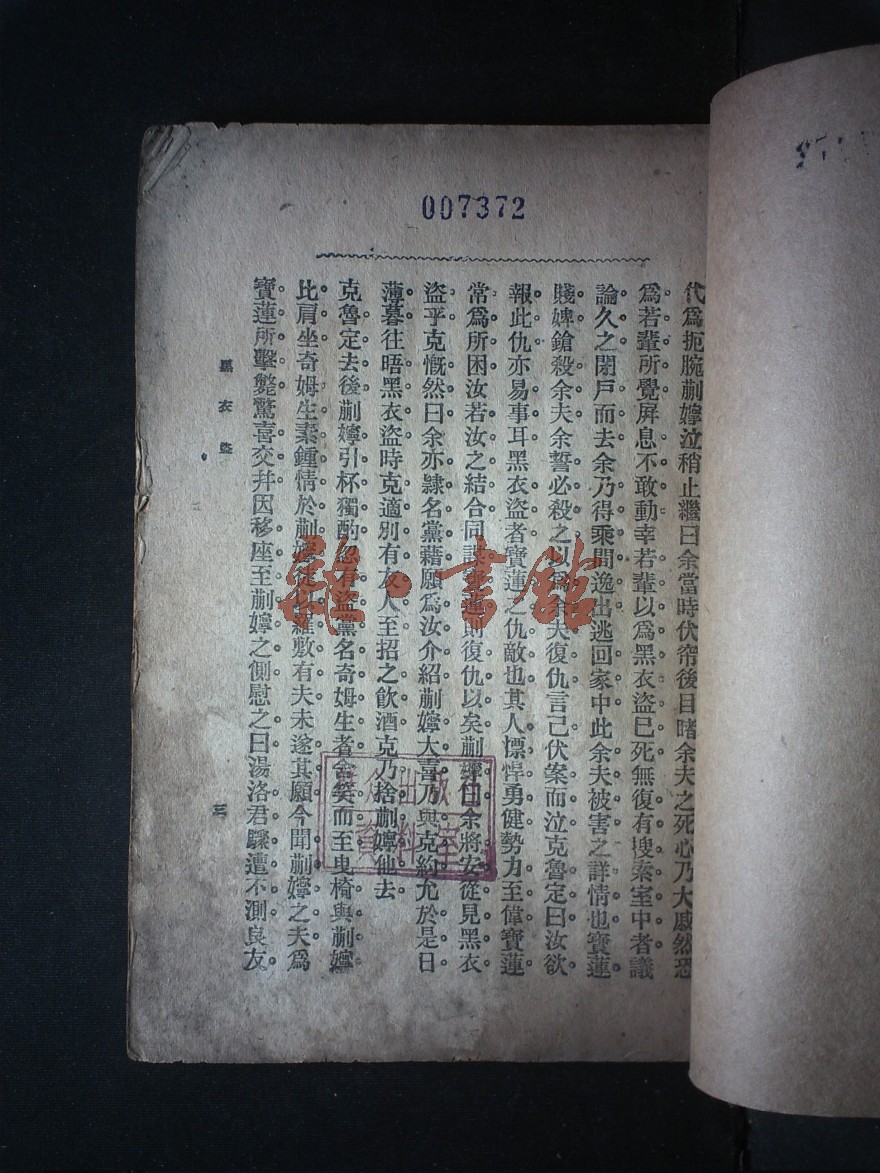 007372
代爲扼腕蒯嬣泣稍止繼曰余當時伏帘後目睹余夫之死心乃大戚然恐
爲若輩所覺屏息不敢動幸若輩以爲黑衣盜已死無復有搜索室中者議
論久之閉戶而去余乃得乘間逸出逃回家中此余夫被害之詳情也寶蓮
賤婢鎗殺余夫余誓必殺之以爲余夫復仇言已伏案而泣克魯定曰汝欲
報此仇亦易事耳黑衣盜者寶蓮之仇敵也其人慓悍勇健勢力至偉寶蓮
常爲所困汝若汝之結合同謀寶蓮則復仇以矣蒯嬣曰余將安從見黑衣
盜乎克慨然曰余亦隸名黨藉願爲汝介紹蒯嬣大喜乃與克約允於是日
薄暮往晤黑衣盜時克適別有友人至招之飲酒克乃捨蒯嬣他去
克魯定去後蒯嬣引杯獨酌忽有盜黨名奇姆生者含笑而至曳椅與蒯嬣
比肩坐奇姆生素鍾情於蒯嬣徒以羅敷有夫未遂其願今聞蒯嬣之夫爲
寶蓮所擊斃驚喜交幷因移座至蒯嬣之側慰之曰湯洛君驟遭不測良友
黑衣盜
三
雜·書館
出版
資料室